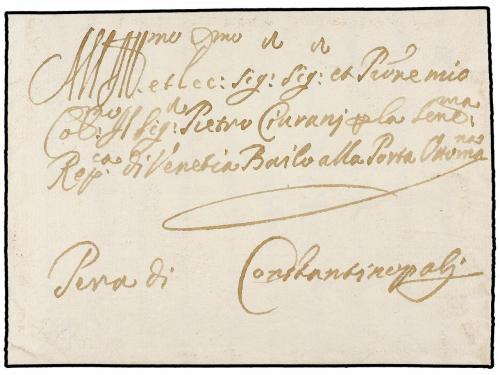 Ill.mo et ecc: sig:r sig:r et Pron mio
Col:mo Il Sig:r Pietro Ciuranj p la Seren:ma
Rep:ca di Venetia Bailo alla Porta Ottoma:na
Pera di Constantinopolj